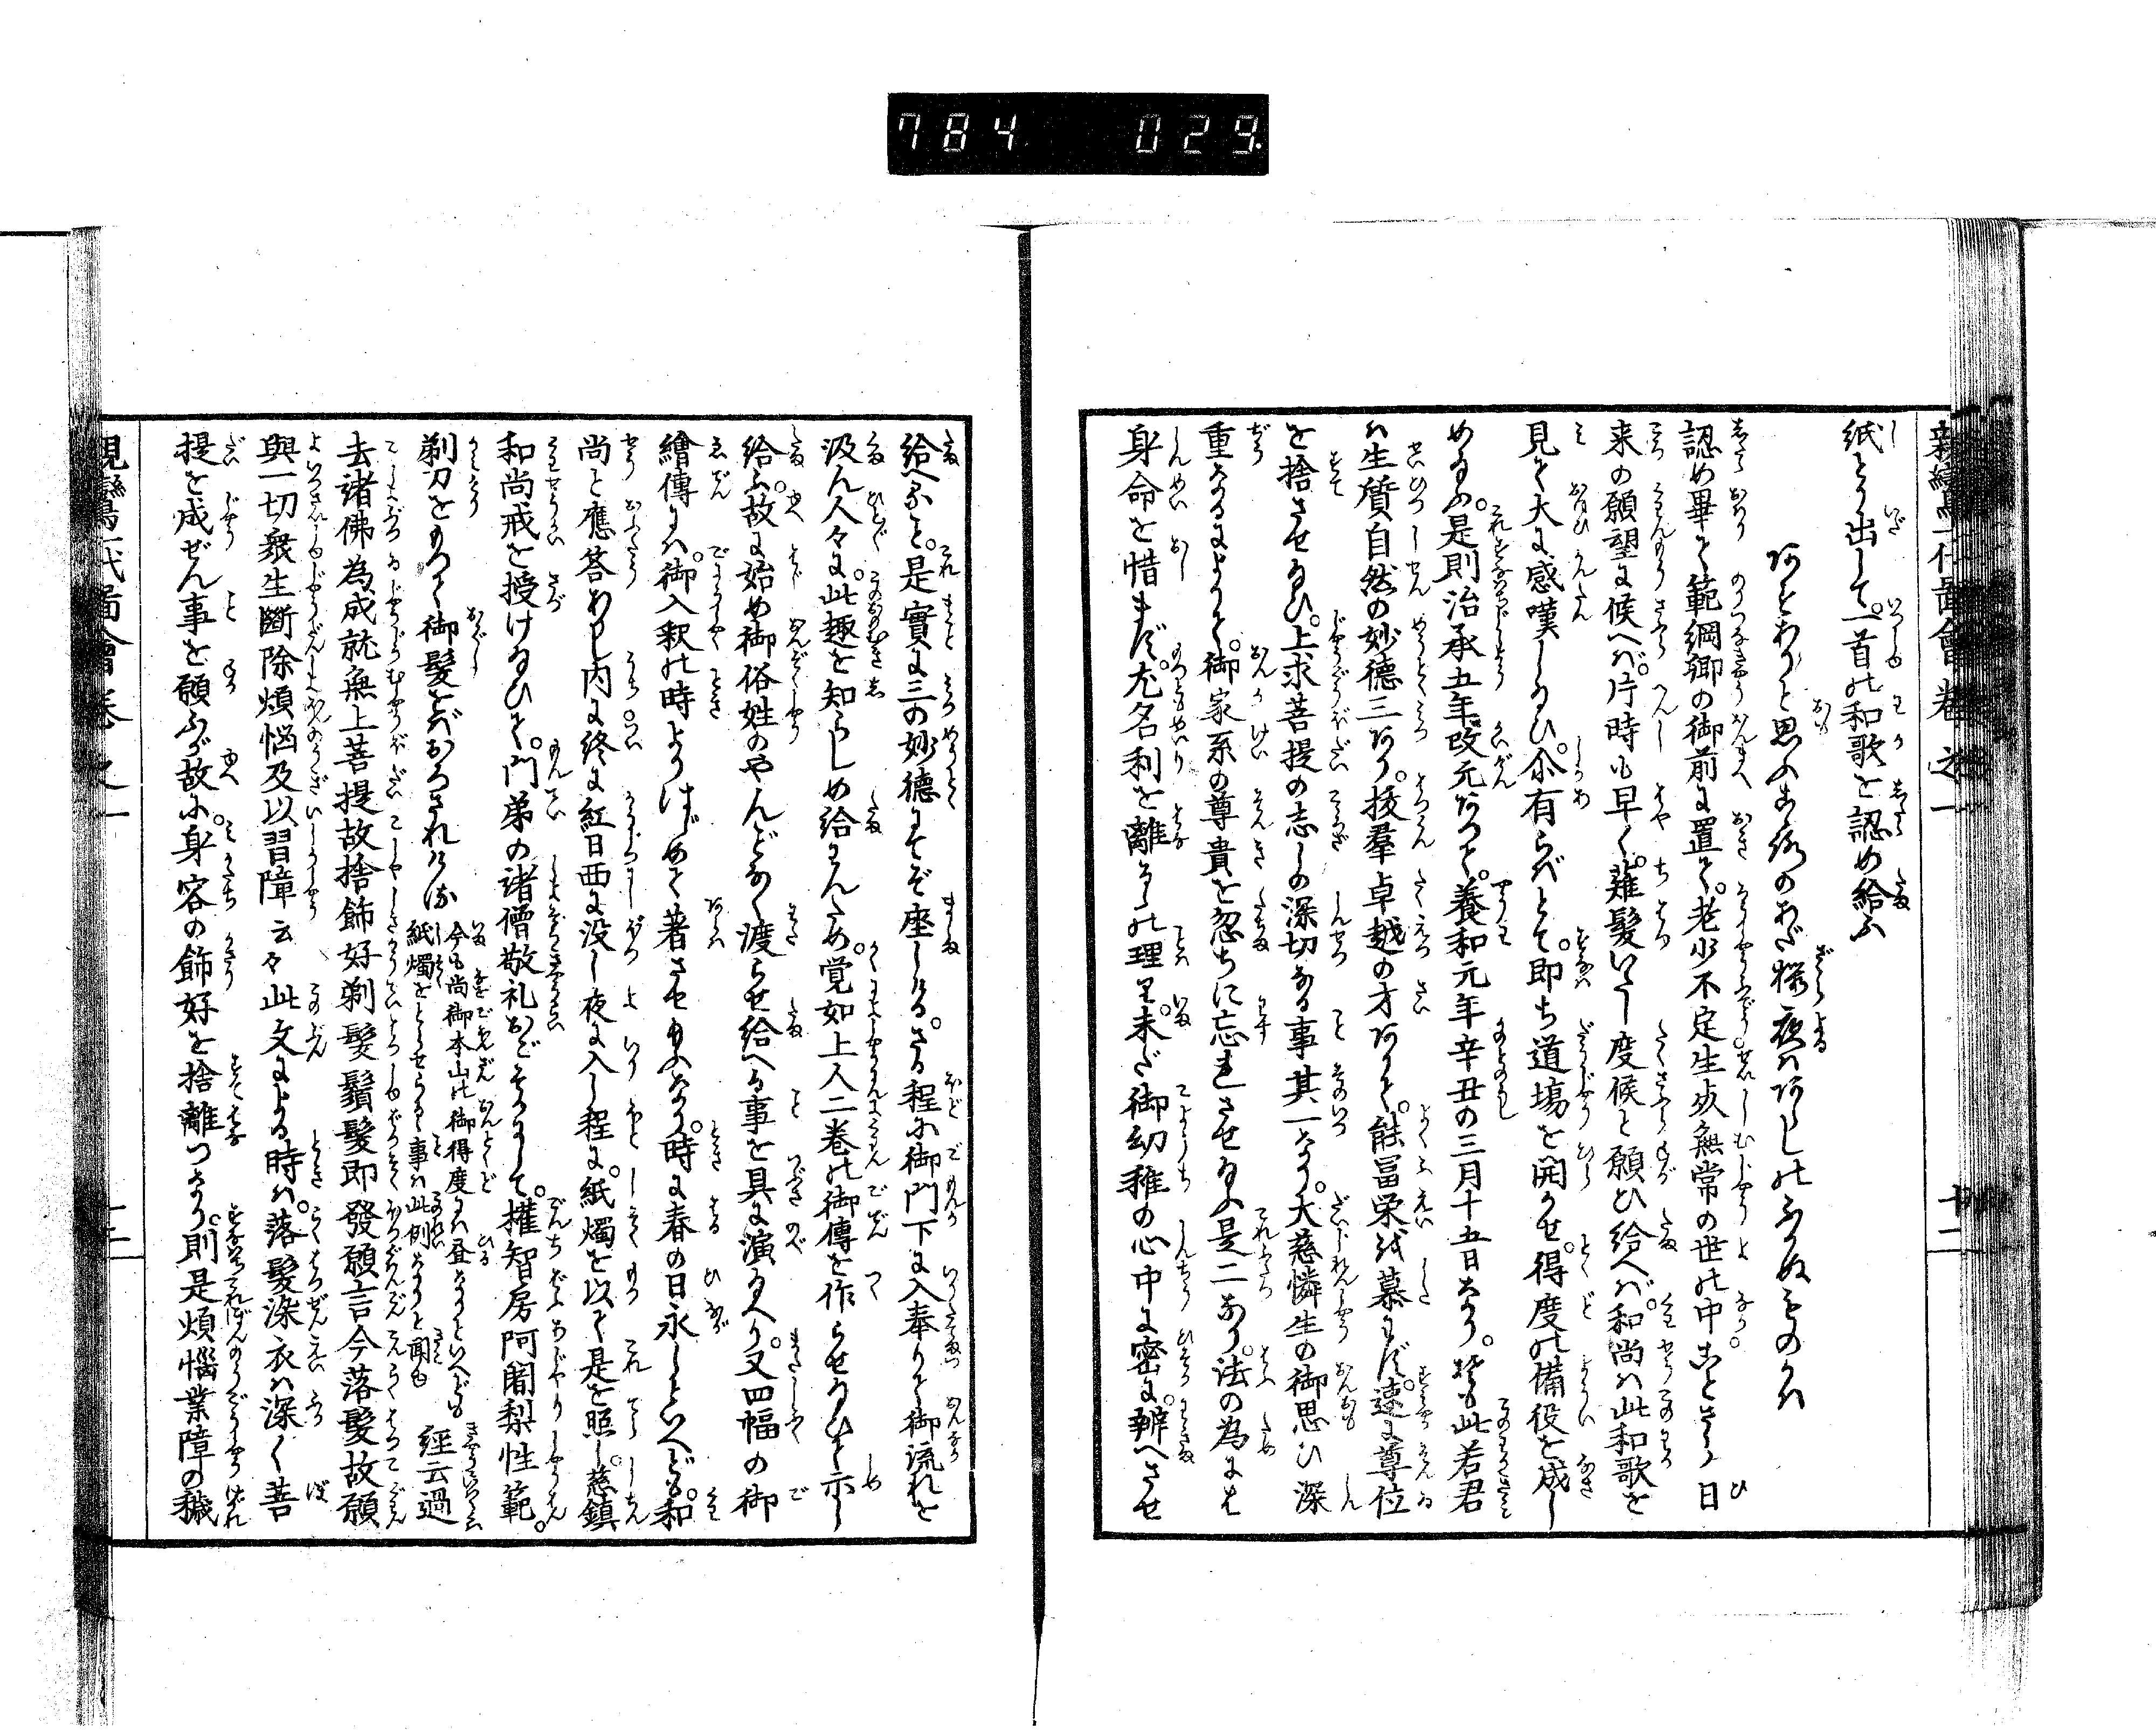 784 029
親鸞聖人一代図會巻之一
十二
紙とり出して。一首の和歌を認め給ふ
明日ありと思ふ心のあだ桜夜はあらしのふかぬものかは
認め畢て範綱卿の御前に置て。老少不定生死無常の世の中。ことさら日
来の願望に候へば。片時も早く。薙髪いたし度候と願ひ給へば。和尚は此和歌を
見て大に感嘆し給ひ。尓有らばとて。即ち道場を開かせ。得度の備役を成し
め給ふ。是則治承五年改元ありて。養和元年辛丑の三月十五日なり。抑も此若君
は生質自然の妙徳三あり。抜羣卓越の才ありて。能冨栄を慕はず。速に尊位
を捨させ給ひ。上求菩提の志しの深切なる事其一なり。大慈憐生の御思ひ深
重なるによりて。御家系の尊貴を忽ちに忘れさせ給ふ是二なり。法の為には
身命を惜まず。尤名利を離るゝの理を。未だ御幼稚の心中に密に。辨へさせ
給へること。是實に三の妙徳にてぞ座しける。さる程に御門下に入奉りて御流れを
汲ん人々に。此趣を知らしめ給はんため。覚如上人二巻の御傳を作らせ給ひて示し
給ふ。故に始め御俗姓のやんごとなく渡らせ給へる事を具に演給へり。又四幅の御
繪傳には。御入釈の時よりはじめて著させ給ふなり。時に春の日永しといへども。和
尚と應答ありし内に終に紅日西に没し夜に入し程に。紙燭を以て是を照し。慈鎮
和尚戒を授け給ひて。門弟の諸僧敬礼おごそかにして。権智房阿闍梨性範。
剃刀をもつて御髪をばおろされける
今も尚御本山の御得度には昼なりといへども
紙燭をとらせらるゝ事は此例なりと聞も
經云過
去諸佛為成就無上菩提故捨飾好剃髮鬚髮即發願言今落髮故願
與一切衆生斷除煩悩及以習障云々此文による時は。落髪染衣は深く菩
提を成ぜん事を願ふが故に。身容の飾好を捨離つなり。則是煩惱業障の穢
親鸞聖人一代図會巻之一
十二